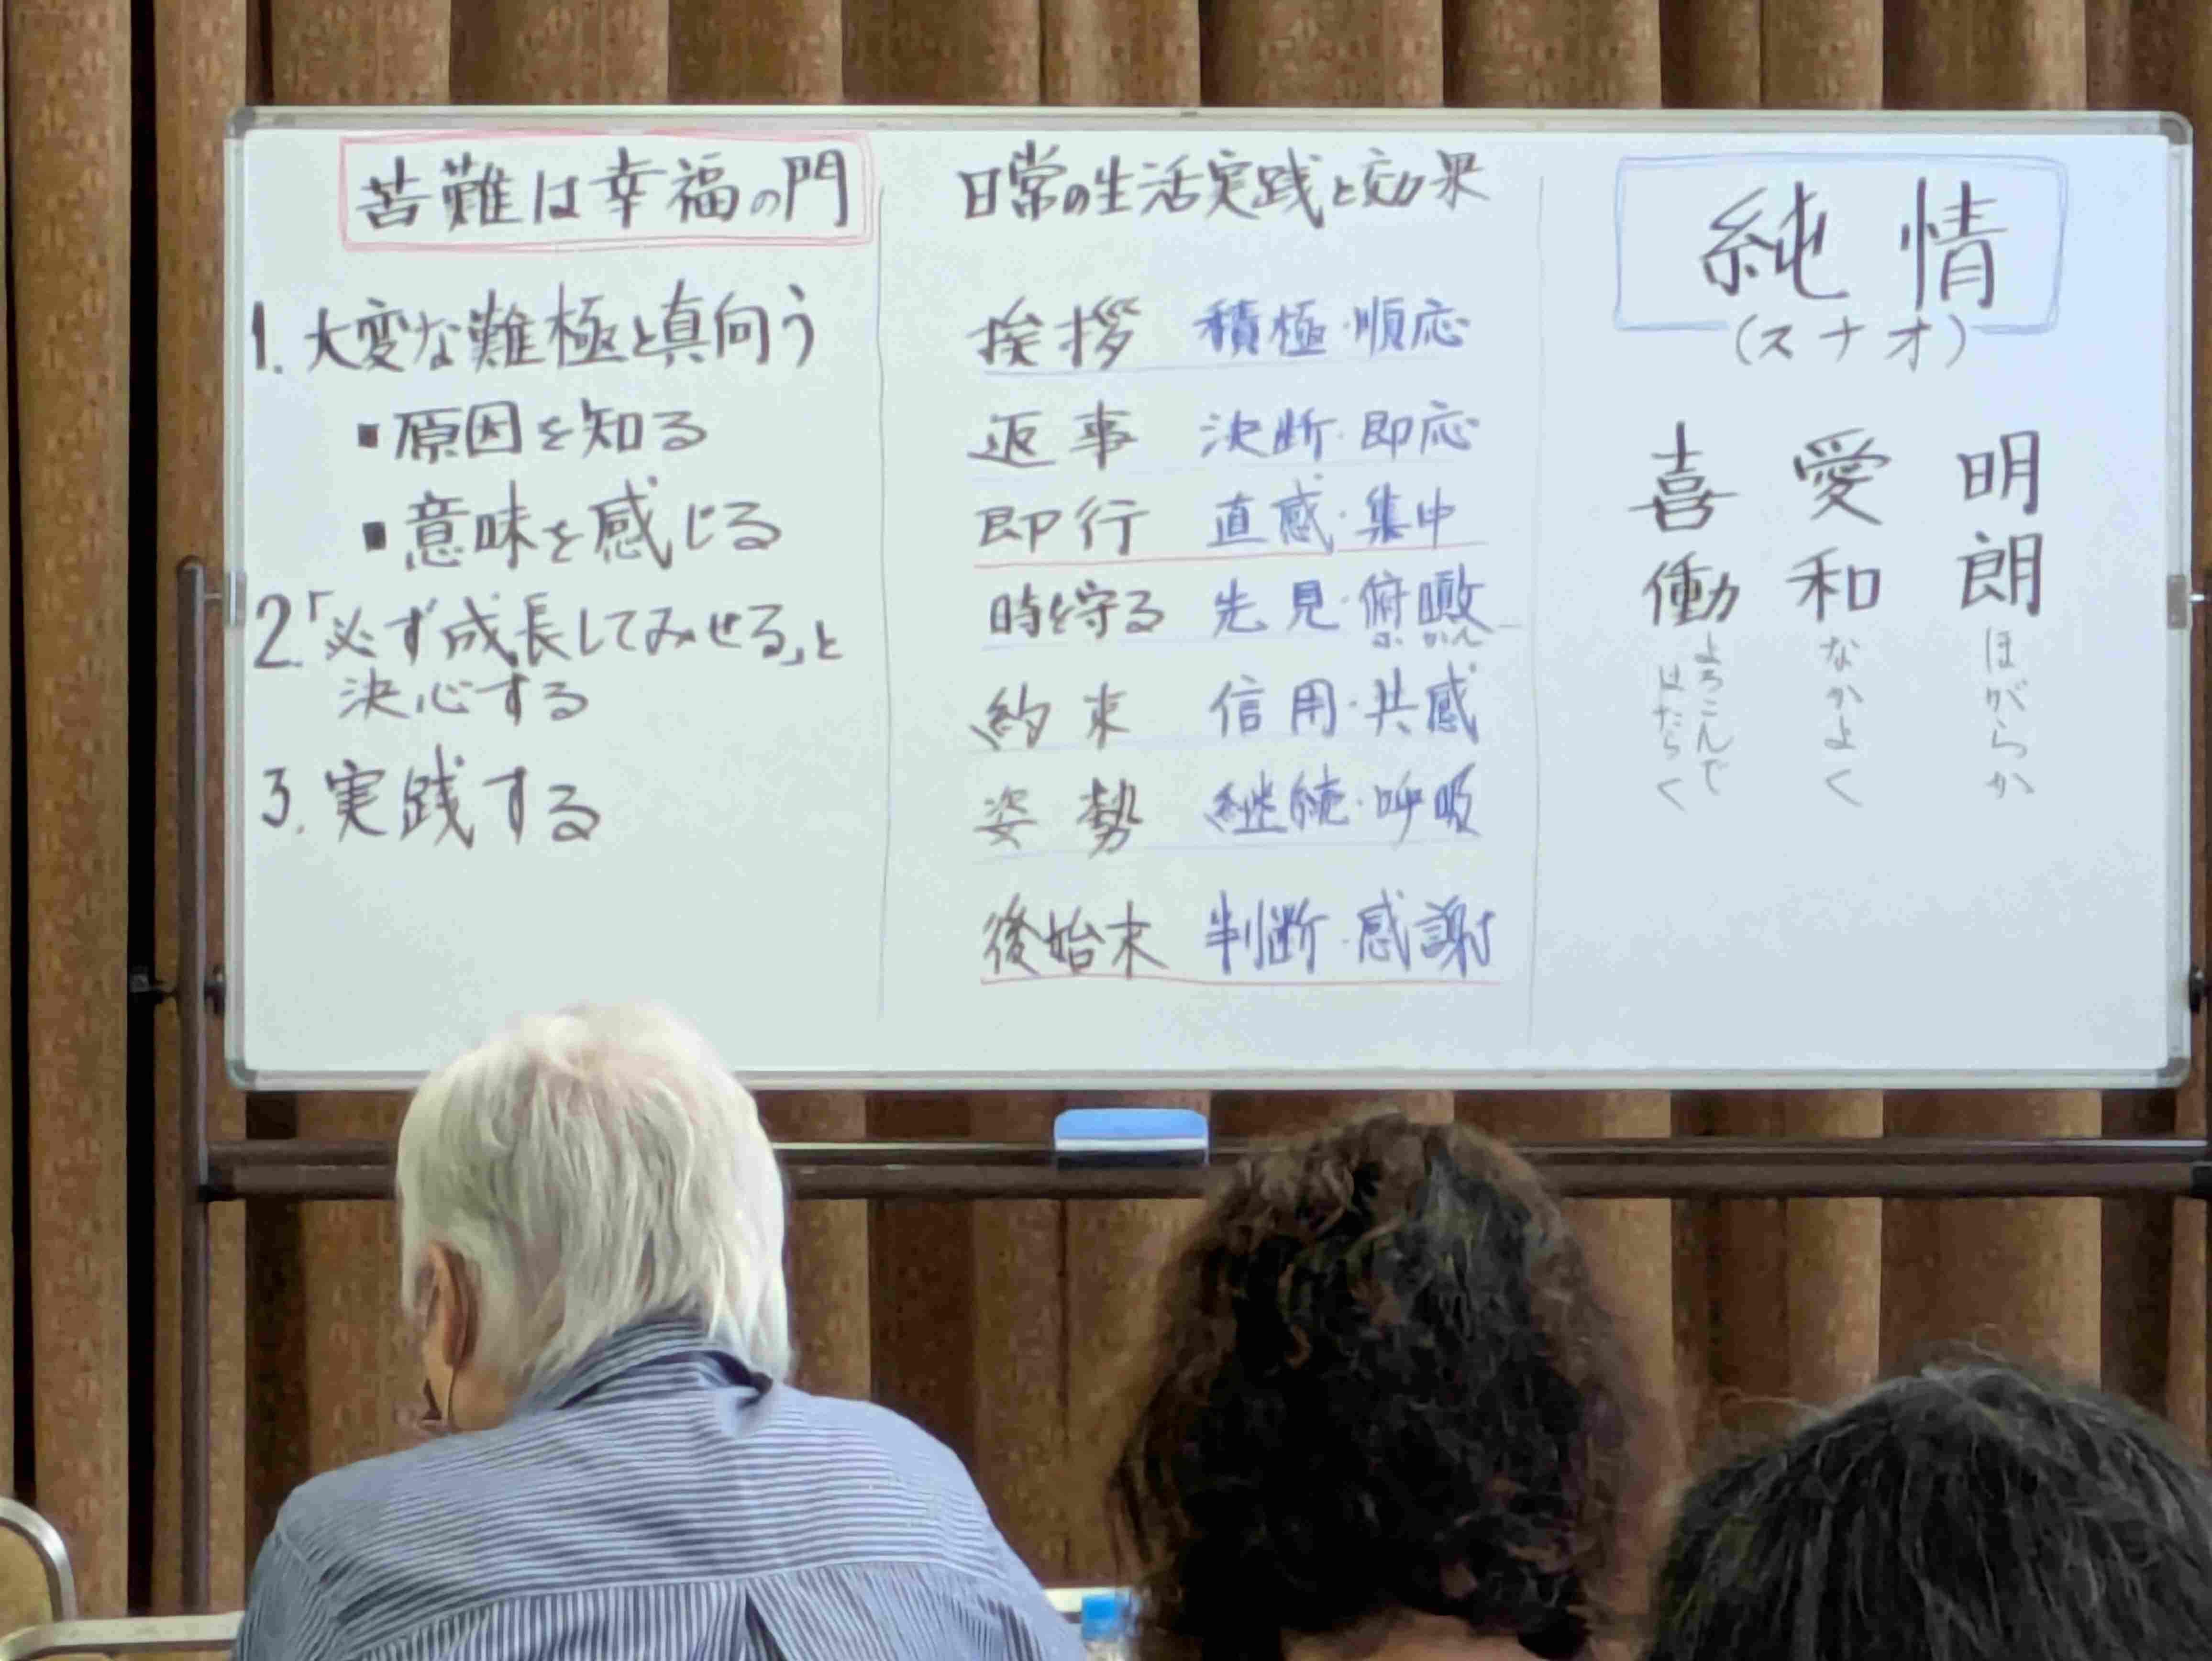 苦難は幸福の門
1. 大変な難極と真向う
▪原因を知る
▪意味を感じる
2.「必ず成長してみせる」と
決心する
3. 実践する
日常の生活実践と効果
挨拶 積極・順応
返事 決断・即応
即行 直感・集中
時を守る 先見・俯瞰
ふ かん
約束 信用・共感
姿勢 継続・呼吸
後始末 判断・感謝
純情
(スナオ)
明朗 ほがらか
愛和 なかよく
喜働 よろこんで
はたらく